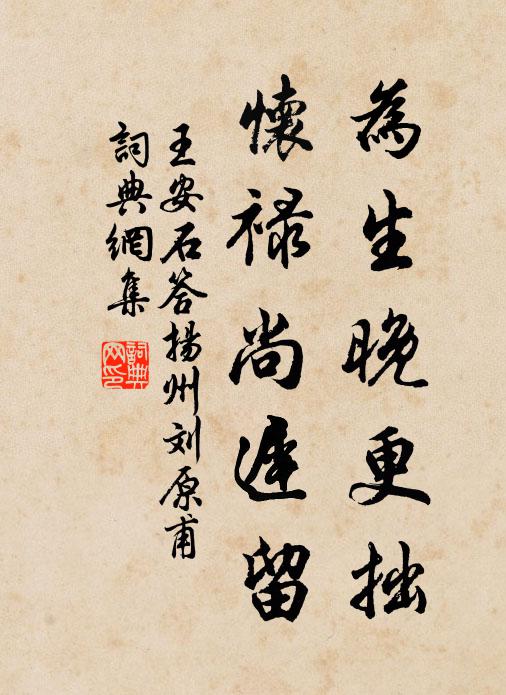 為生晚更拙
懷祿尚遲留
王安石答揚州刘原甫
詞典網集
詞典網印